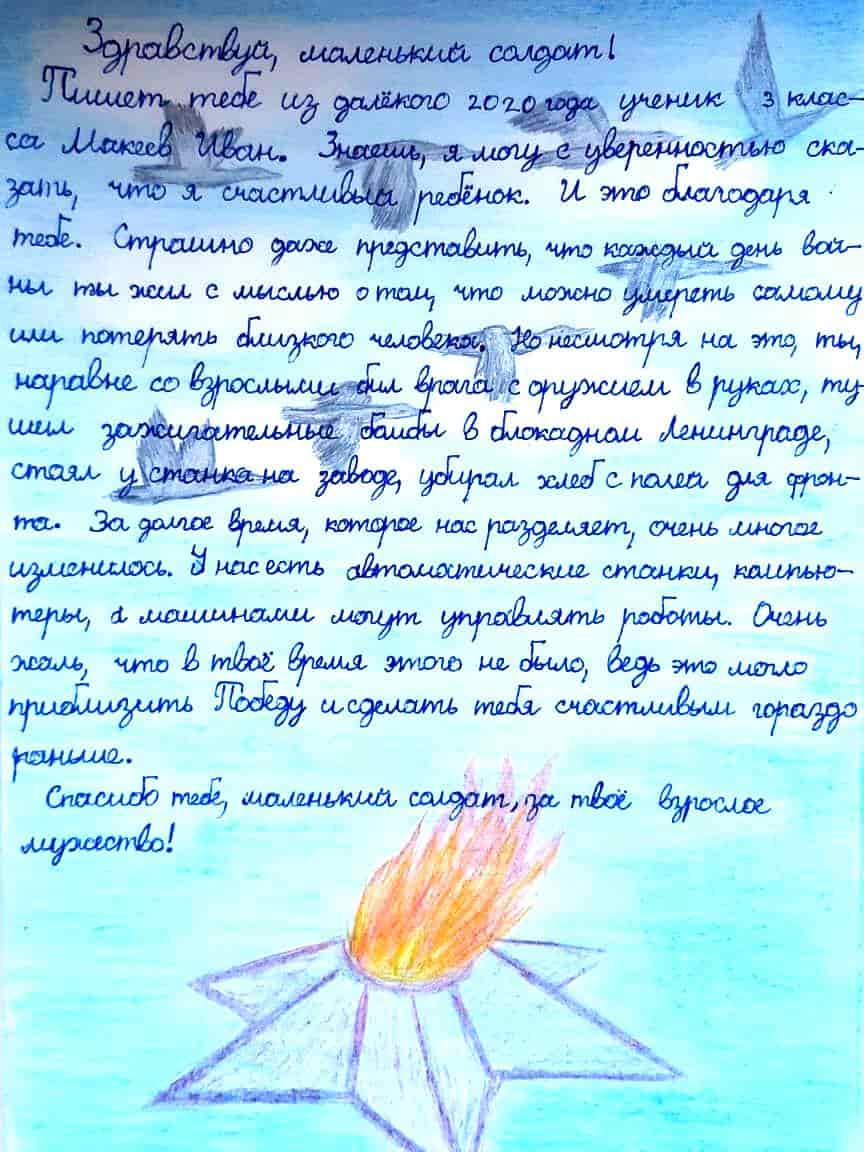 Здравствуй, маленький солдат!
Пишет тебе из далёкого 2020 года ученик 3 клас-
са Макеев Иван. Знаешь, я могу с уверенностью ска-
зать, что я счастливый ребёнок. И это благодаря
тебе. Страшно даже представить, что каждый день вой-
ны ты жил с мыслью о том, что можно умереть самому
или потерять близкого человека. Но несмотря на это, ты,
наравне со взрослыми бил врага с оружием в руках, ту-
шил зажигательные бомбы в блокадном Ленинграде,
стоял у станка на заводе, убирал хлеб с полей для фрон-
та. За долгое время, которое нас разделяет, очень многое
изменилось. У нас есть автоматические станки, компью-
теры, а машинами могут управлять роботы. Очень
жаль, что в твоё время этого не было, ведь это могло
приблизить Победу и сделать тебя счастливым гораздо
раньше.
Спасибо тебе, маленький солдат, за твоё взрослое
мужество!